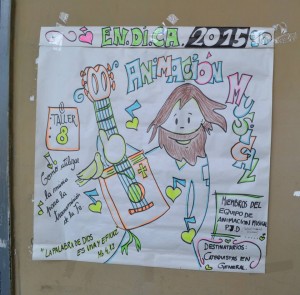 EN.DI.CA. 2015
ANIMACIÓN
MUSICAL
TALLER
8
Como utilizar
la musica
para la
de la Fe
"LA PALABRA DE DIOS
ES VIVA Y EFICAZ"
Hb 4,12
MIEMBROS DEL
EQUIPO DE
ANIMACIÓN MUSICAL
DESTINATARIOS:
CATEQUISTAS EN
GENERAL